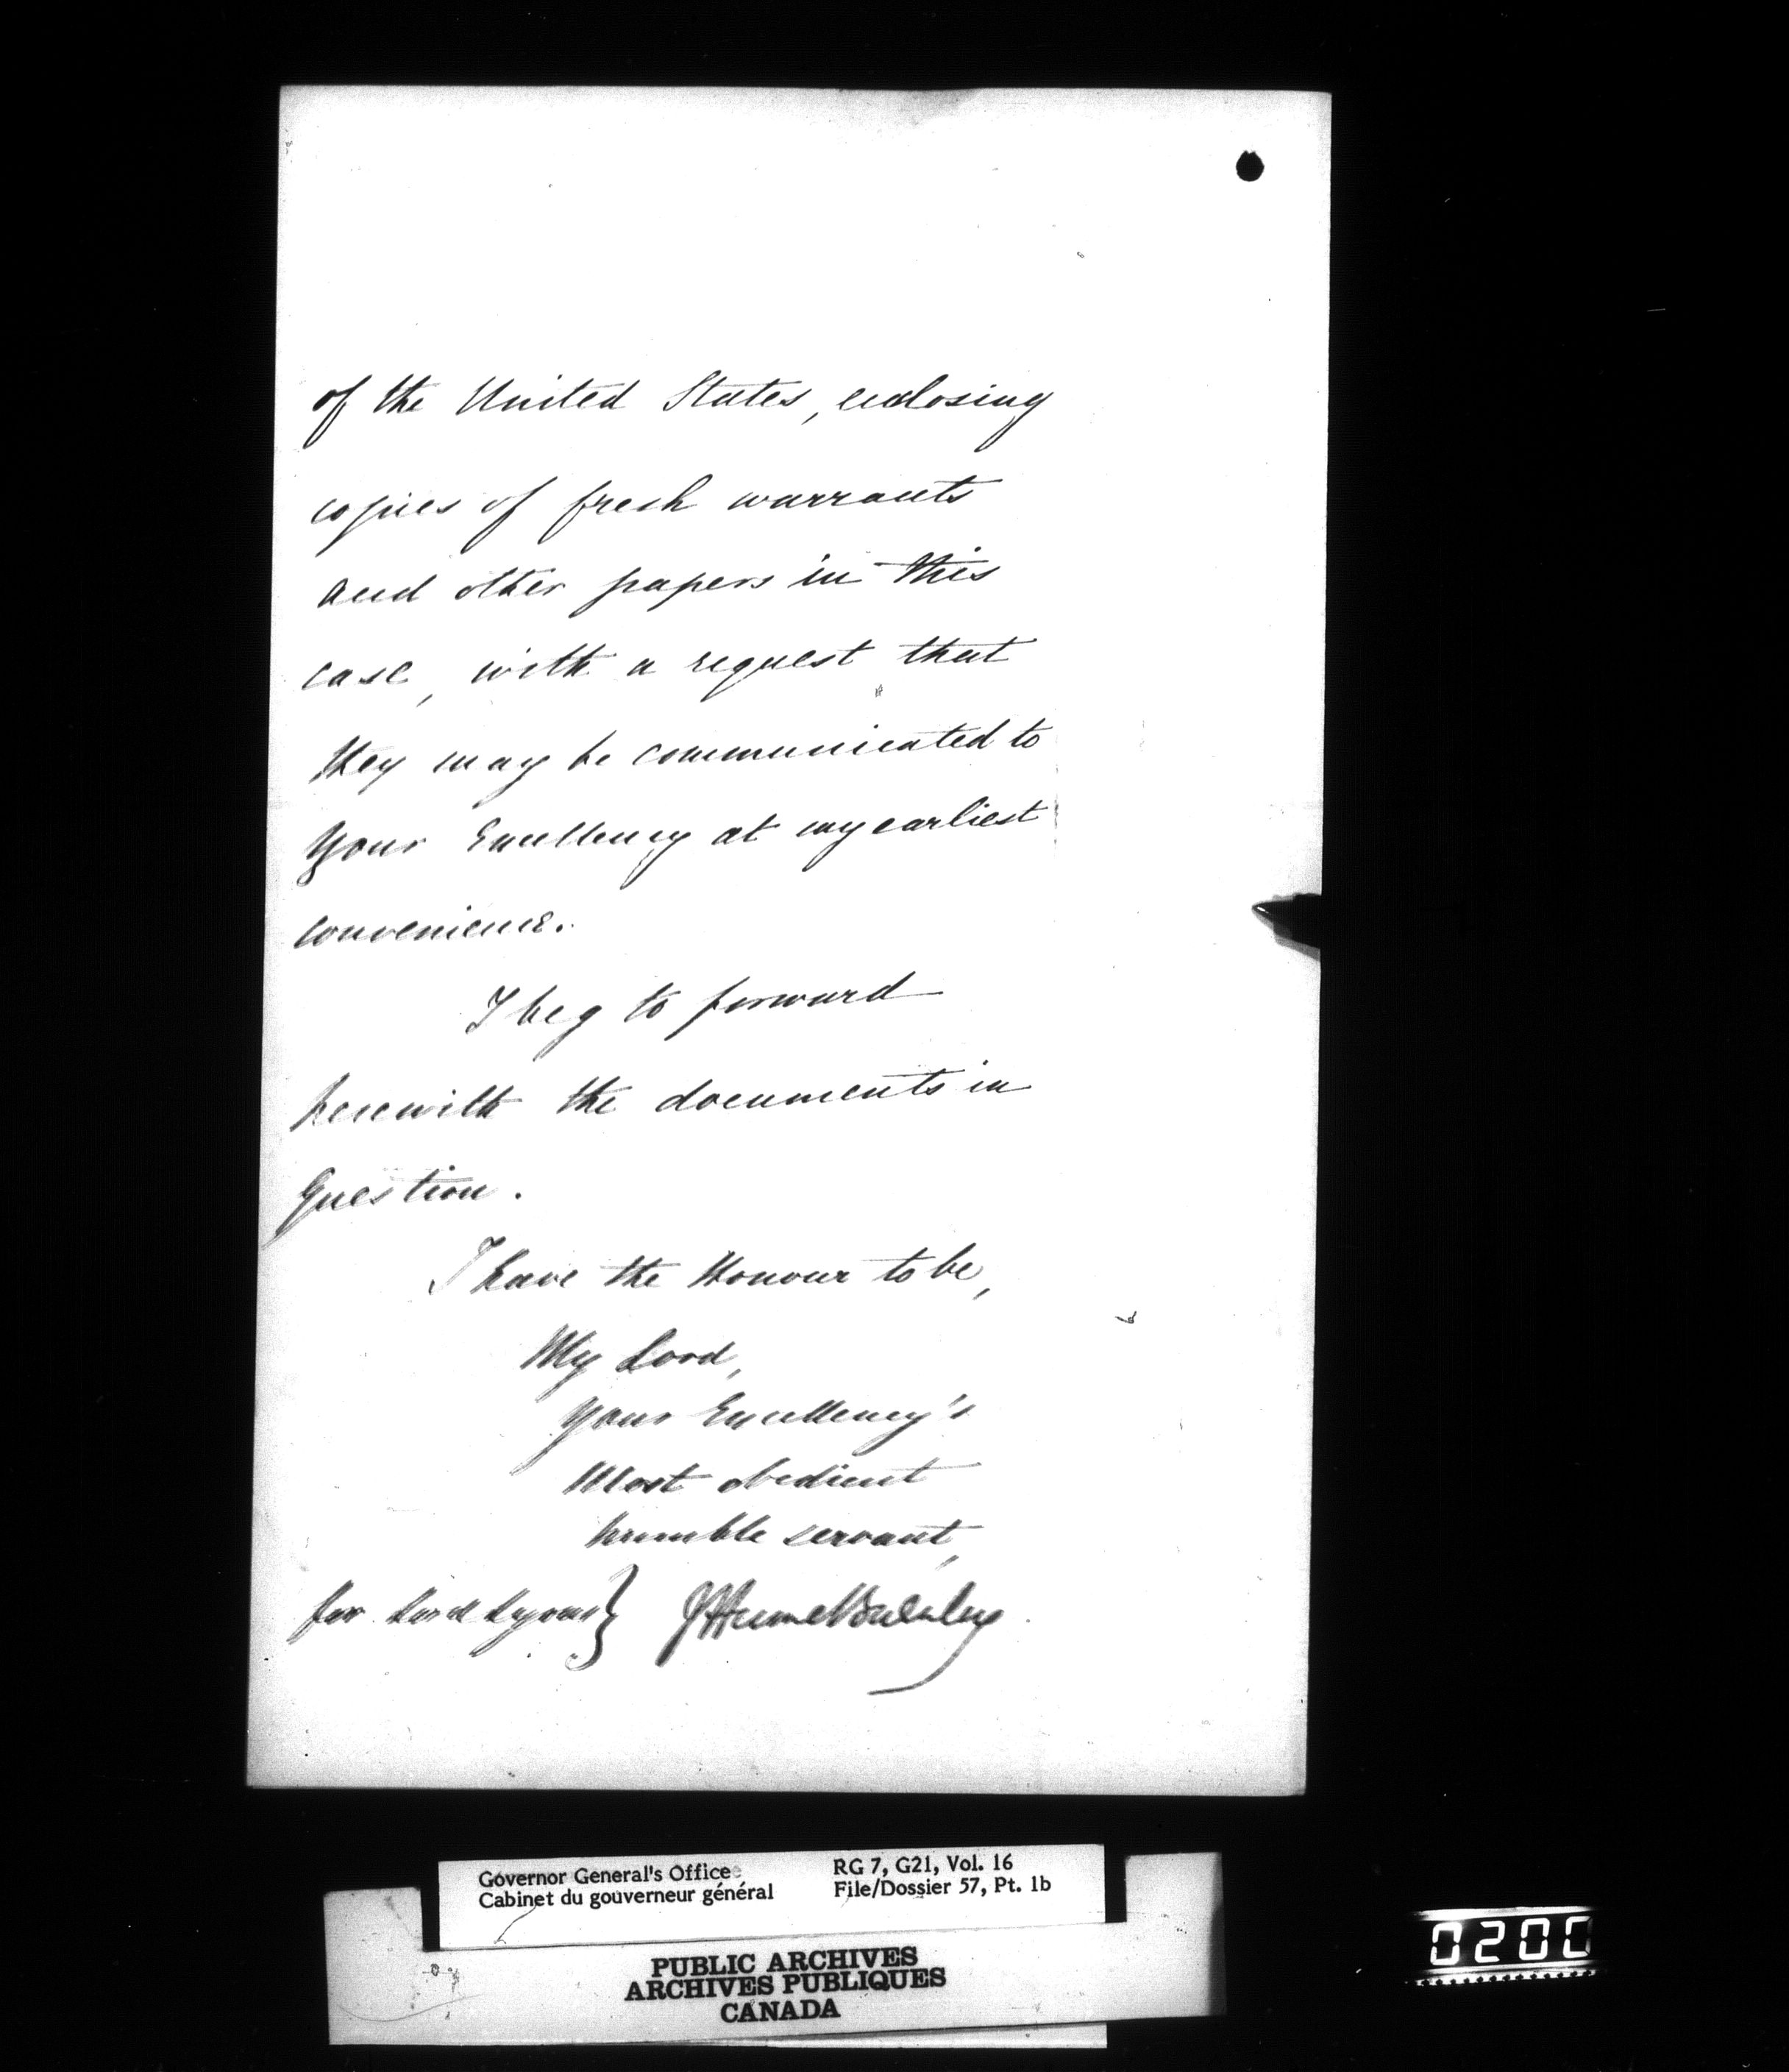 of the United States, enclosing
copies of fresh warrants
and other papers in this
case, with a request that
they may be communicated to
Your Excellency at my earliest
convenience.
I beg to forward
herewith the documents in
question.
I have the Honour to be,
My Lord,
Your Excellency's
Most obedient
humble servant,
for Lord Lyons } J Hume Burnley
Governor General's Office
Cabinet du gouverneur général
RG 7, G21, Vol. 16
File/Dossier 57, Pt. 1b
PUBLIC ARCHIVES
ARCHIVES PUBLIQUES
CANADA
0200